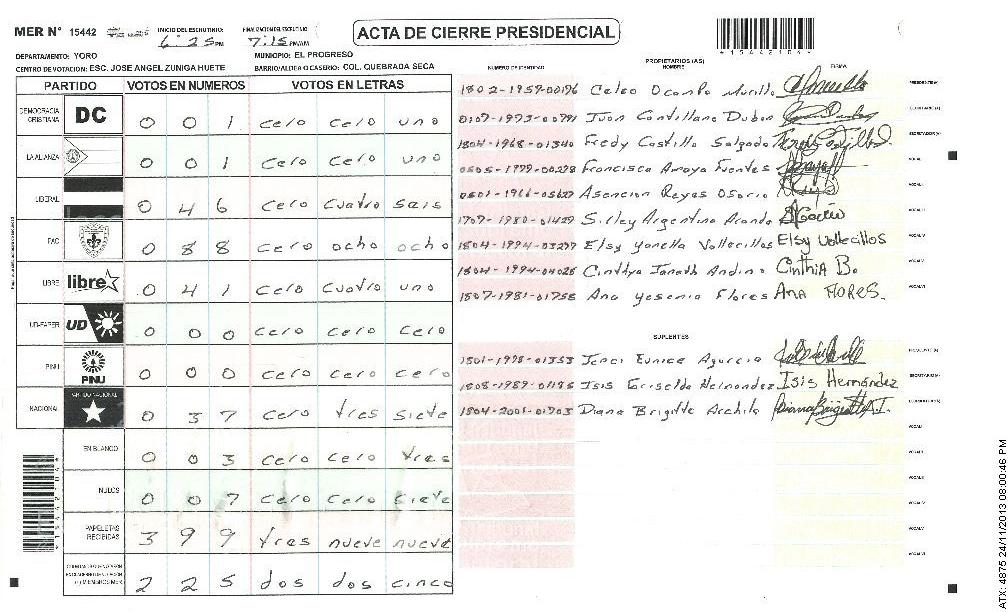 MER N° 15442
INICIO DEL ESCRUTINIO:
6:25 PM
FINALIZACION DEL ESCRUTINIO
7:15 PM/AM
ACTA DE CIERRE PRESIDENCIAL
*15442104*
DEPARTAMENTO: YORO
MUNICIPIO: EL PROGRESO
CENTRO DE VOTACION: ESC. JOSE ANGEL ZUNIGA HUETE
BARRIO/ALDEA O CASERIO: COL. QUEBRADA SECA
PARTIDO VOTOS EN NUMEROS VOTOS EN LETRAS
DEMOCRACIA CRISTIANA DC 0 0 1 cero cero uno
LA ALIANZA 0 0 1 cero cero uno
LIBERAL 0 4 6 cero cuatro seis
PAC 0 8 8 cero ocho ocho
LIBRE libre 0 4 1 cero cuatro uno
UD-FAPER UD 0 0 0 cero cero cero
PINU PINU 0 0 0 cero cero cero
NACIONAL PARTIDO NACIONAL 0 3 7 cero tres siete
EN BLANCO 0 0 3 cero cero tres
NULOS 0 0 7 cero cero siete
PAPELETAS RECIBIDAS 3 9 9 tres nueve nueve
2 2 5 dos dos cinco
NUMERO DE IDENTIDAD
PROPIETARIOS (AS)
NOMBRE
FIRMA
1802-1957-00196 Celeo Ocampo Murillo
0107-1973-00791 Ivon Cantillano Dubon
1804-1968-01340 Fredy Castillo Salgado
0505-1979-00278 Francisca Amaya Fuentes
0501-1966-05627 Asencion Reyes Osorio
1707-1980-01429 Sirley Argentina
1804-1994-03277 Elsy Yanella Vallecillos Elsy Vallecillos
1804-1994-04028 Cinthya Janeth Andino Cinthia B.
1807-1981-01758 Ana Yesenia Flores ANA FLORES.
SUPLENTES
1801-1978-01353 Eunice
1808-1989-01196 Isis Griselda Hernandez Isis Hernández
1804-2001-01703 Diana Brigitte Archila
ATX: 4875 24/11/2013 08:00:46 PM